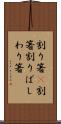 割り箸 割
箸割りばし
わり箸